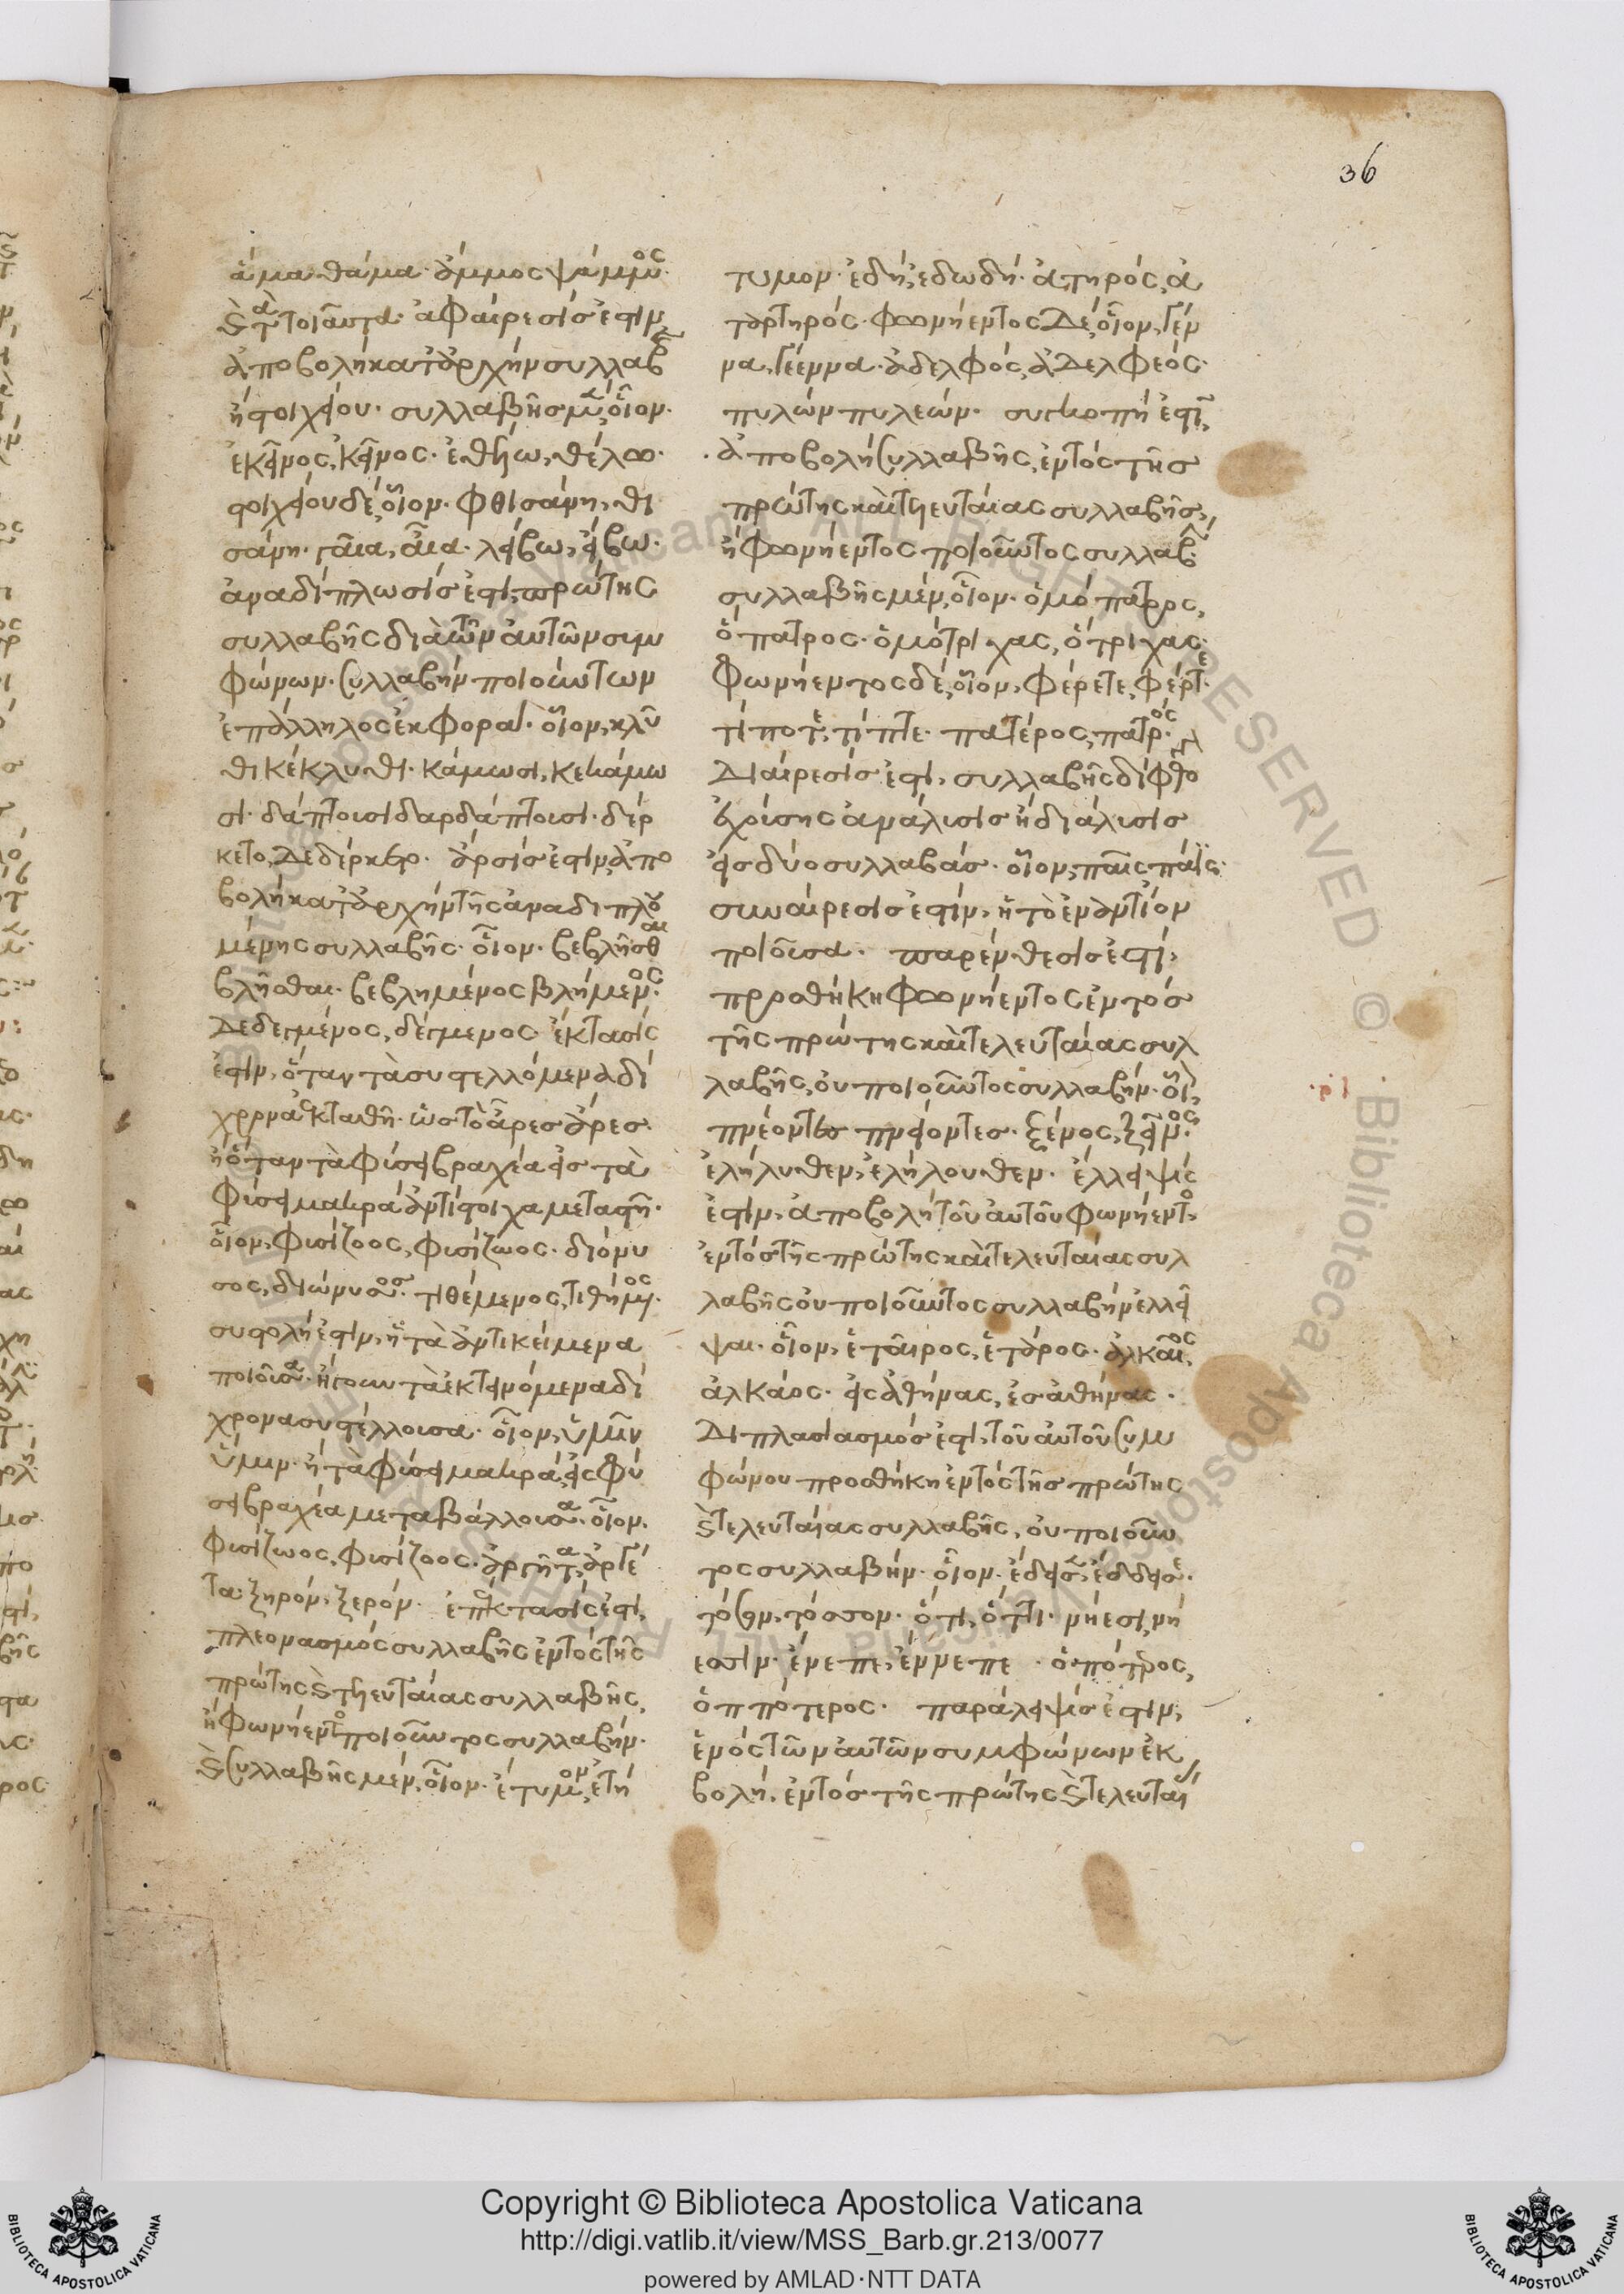 36
ἅμα θάμα· ἄμμος ψάμμος·
καὶ τὰ τοιαῦτα· ἀφαίρεσίς ἐστιν,
ἀποβολὴ κατ' ἀρχὴν συλλαβῆς
ἢ στοιχείου· συλλαβῆς μὲν, οἷον·
ἐκεῖνος, κεῖνος· ἐθέλω, θέλω·
στοιχείου δὲ, οἷον· φθισάνη, θι
σάνη· γαῖα, αἶα· λείβω, εἴβω·
ἀναδίπλωσίς ἐστι, πρώτης
συλλαβῆς διὰ τῶν αὐτῶν συμ
φώνων· συλλαβὴν ποιούντων
ἐπάλληλος ἐκφορά· οἷον, κλῦ
θι κέκλυθι· κάμωσι, κεκάμω
σι· δάπτουσι δαρδάπτουσι· δέρ
κετο, δεδέρκετο· ἄρσίς ἐστιν, ἀπο
βολὴ κατ' ἀρχὴν τῆς ἀναδιπλου
μένης συλλαβῆς· οἷον· βεβλῆσθαι
βλῆσθαι· βεβλημένος βλήμενος·
δεδεγμένος, δέγμενος· ἔκτασίς
ἐστιν, ὅταν τὰ συστελλόμενα δί
χρονα ἐκταθῆ· ὡς τὸ ἆρες ἄρες·
ἢ ὅταν τὰ φύσει βραχέα εἰς τὰ
φύσει μακρὰ ἀντίστοιχα μεταστῆ·
οἷον, φυσίζοος, φυσίζωος· διόνυ
σος, διώνυσος· τιθέμενος, τιθήμενος·
συστολή ἐστιν, ἡ τὰ ἀντικείμενα
ποιοῦσα· ἤγουν τὰ ἐκτεινόμενα δί
χρονα συστέλλουσα· οἷον, ὑμῖν
ὕμιν· ἢ τὰ φύσει μακρὰ, εἰς φύ
σει βραχέα μεταβάλλουσα· οἷον·
φυσίζωος, φυσίζοος· ἀργῆτα, ἀργέ
τα· ξηρόν, ξερόν· ἐπέκτασίς ἐστι,
πλεονασμὸς συλλαβῆς ἐντὸς τῆς
πρώτης καὶ τελευταίας συλλαβῆς,
ἢ φωνήεντος ποιοῦντος συλλαβήν·
καὶ συλλαβῆς μὲν, οἷον· ἔτυμον, ἐτή
τυμον· ἐδή, ἐδωδή· ἀτηρός, ἀ
ταρτηρός· φωνήεντος δὲ, οἷον, γέν
να, γέεννα· ἀδελφός, ἀδελφεός·
πυλών πυλεών· συγκοπή ἐστι,
ἀποβολὴ συλλαβῆς, ἐντὸς τῆς
πρώτης καὶ τελευταίας συλλαβῆς,
ἢ φωνήεντος ποιοῦντος συλλαβήν·
συλλαβῆς μὲν, οἷον· ὁμόπατρος,
ὄπατρος· ὁμότριχας, ὄτριχας·
φωνήεντος δὲ, οἷον, φέρετε, φέρτε·
τίποτε, τίπτε· πατέρος, πατρός·
διαίρεσίς ἐστι, συλλαβῆς δίφθογγον
ἐχούσης ἀνάλυσις ἢ διάλυσις
εἰς δύο συλλαβάς· οἷον, παῖς πάϊς·
συναίρεσίς ἐστιν, ἡ τὸ ἐναντίον
ποιοῦσα· παρένθεσίς ἐστι,
προσθήκη φωνήεντος ἐντὸς
τῆς πρώτης καὶ τελευταίας συλ
λαβῆς, οὐ ποιοῦντος συλλαβήν· οἷον,
πνέοντες πνείοντες· ξένος, ξεῖνος·
ἐλήλυθεν, ἐλήλουθεν· ἔλλειψίς
ἐστιν, ἀποβολὴ τοῦ αὐτοῦ φωνήεντος,
ἐντὸς τῆς πρώτης καὶ τελευταίας συλ
λαβῆς οὐ ποιοῦντος συλλαβὴν ἐλλεῖ
ψαι· οἷον, ἑταῖρος, ἕταρος· ἀλκαῖος,
ἀλκάος· εἰς ἀθήνας, ἐς ἀθήνας·
διπλασιασμός ἐστι, τοῦ αὐτοῦ συμ
φώνου προσθήκη ἐντὸς τῆς πρώτης
καὶ τελευταίας συλλαβῆς, οὐ ποιοῦν
τος συλλαβήν· οἷον· ἔδεισε, ἔδδεισε·
τόσον, τόσσον· ὅτι, ὅττι· μὴ ἐσι, μὴ
εσσιν· ἔνεπε, ἔννεπε · ὁπότερος,
ὁππότερος· παράλειψίς ἐστιν,
ἑνὸς τῶν αὐτῶν συμφώνων ἐκ
βολή, ἐντὸς τῆς πρώτης καὶ τελευταί
Copyright © Biblioteca Apostolica Vaticana
http://digi.vatlib.it/view/MSS_Barb.gr.213/0077
powered by AMLAD·NTT DATA
BIBLIOTECA APOSTOLICA VATICANA
BIBLIOTECA APOSTOLICA VATICANA